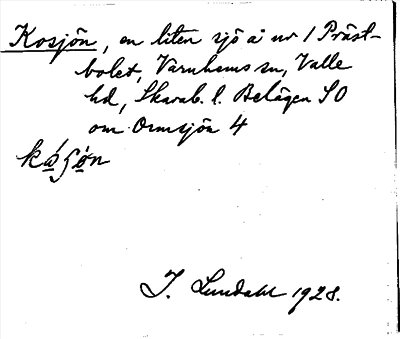 Kosjön, en liten sjö å nr 1 Präst-
bolet, Varnhems sn, Valle
hd, Skarab. l. Belägen SO
om Ormsjön 4
I. Lundahl 1928.